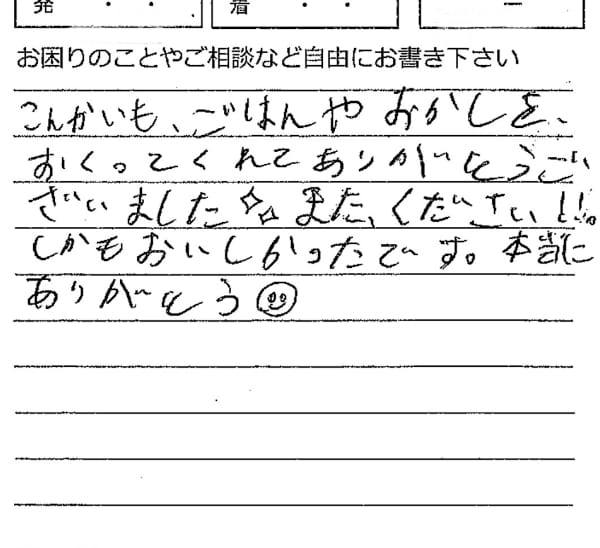 発 ・ ・ 着 ・ ・ ー
お困りのことやご相談など自由にお書き下さい
こんかいも、ごはんや おかしを、
おくってくれて ありがとうござ
ざいました✧✧ また、ください!!。
しかもおいしかったです。本当に
ありがとう☺